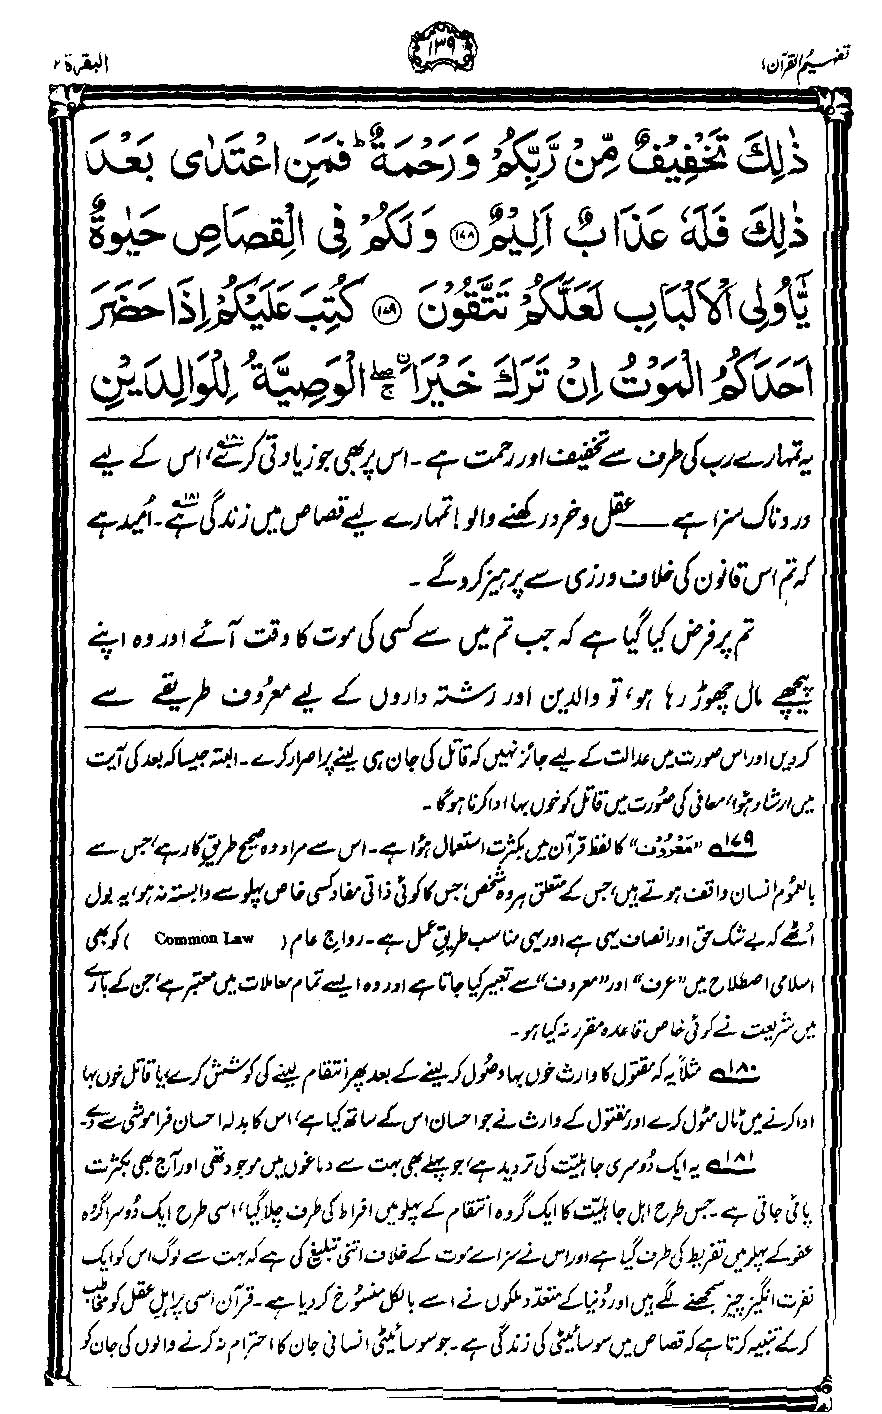 تفہیم القرآن ۱
۱۳۹
البقرۃ ۲
ذٰلِكَ تَخْفِيْفٌ مِّنْ رَّبِّكُمْ وَرَحْمَةٌ ؕ فَمَنِ اعْتَدٰى بَعْدَ
ذٰلِكَ فَلَهٗ عَذَابٌ اَلِيْمٌ ﴿۱۷۸﴾ وَلَكُمْ فِى الْقِصَاصِ حَيٰوةٌ
يّٰۤاُولِى الْاَلْبَابِ لَعَلَّكُمْ تَتَّقُوْنَ ﴿۱۷۹﴾ كُتِبَ عَلَيْكُمْ اِذَا حَضَرَ
اَحَدَكُمُ الْمَوْتُ اِنْ تَرَكَ خَيْرَا ۖۚ اۨلْوَصِيَّةُ لِلْوَالِدَيْنِ
یہ تمہارے رب کی طرف سے تخفیف اور رحمت ہے۔ اس پر بھی جو زیادتی کرے۱۸۰، اس کے لیے
دردناک سزا ہے ــــــ عقل و خرد رکھنے والو! تمہارے لیے قصاص میں زندگی ہے۱۸۱۔ اُمید ہے
کہ تم اس قانون کی خلاف ورزی سے پرہیز کرو گے۔
تم پر فرض کیا گیا ہے کہ جب تم میں سے کسی کی موت کا وقت آئے اور وہ اپنے
پیچھے مال چھوڑ رہا ہو، تو والدین اور رشتہ داروں کے لیے معروف طریقے سے
کر دیں اور اس صورت میں عدالت کے لیے جائز نہیں کہ قاتل کی جان ہی لینے پر اصرار کرے۔ البتہ جیسا کہ بعد کی آیت
میں ارشاد ہوا، معافی کی صُورت میں قاتل کو خوں بہا ادا کرنا ہوگا۔
۱۷۹ “مَعْرُوْف” کا لفظ قرآن میں بکثرت استعمال ہُوا ہے۔ اس سے مراد وہ صحیح طریقِ کار ہے، جس سے
بالعمُوم انسان واقف ہوتے ہیں، جس کے متعلق ہر وہ شخص، جس کا کوئی ذاتی مفاد کسی خاص پہلو سے وابستہ نہ ہو، یہ بول
اُٹھے کہ بے شک حق اور انصاف یہی ہے اور یہی مناسب طریقِ عمل ہے۔ رواجِ عام (Common Law) کو بھی
اسلامی اصطلاح میں “عرف” اور “معروف” سے تعبیر کیا جاتا ہے اور وہ ایسے تمام معاملات میں معتبر ہے، جن کے بارے
میں شریعت نے کوئی خاص قاعدہ مقرر نہ کیا ہو۔
۱۸۰ مثلاً یہ کہ مقتول کا وارث خوں بہا وصُول کر لینے کے بعد پھر انتقام لینے کی کوشش کرے، یا قاتل خوں بہا
ادا کرنے میں ٹال مٹول کرے اور مقتول کے وارث نے جو احسان اس کے ساتھ کیا ہے، اس کا بدلہ احسان فراموشی سے دے۔
۱۸۱ یہ ایک دُوسری جاہلیّت کی تردید ہے، جو پہلے بھی بہت سے دماغوں میں موجود تھی اور آج بھی بکثرت
پائی جاتی ہے۔ جس طرح اہلِ جاہلیّت کا ایک گروہ انتقام کے پہلو میں افراط کی طرف چلا گیا، اسی طرح ایک دُوسرا گروہ
عفو کے پہلو میں تفریط کی طرف گیا ہے اور اس نے سزائے موت کے خلاف اتنی تبلیغ کی ہے کہ بہت سے لوگ اس کو ایک
نفرت انگیز چیز سمجھنے لگے ہیں اور دُنیا کے متعدّد ملکوں نے اسے بالکل منسُوخ کر دیا ہے۔ قرآن اسی پر اہلِ عقل کو مخاطب
کر کے تنبیہ کرتا ہے کہ قصاص میں سوسائیٹی کی زندگی ہے۔ جو سوسائیٹی انسانی جان کا احترام نہ کرنے والوں کی جان کو